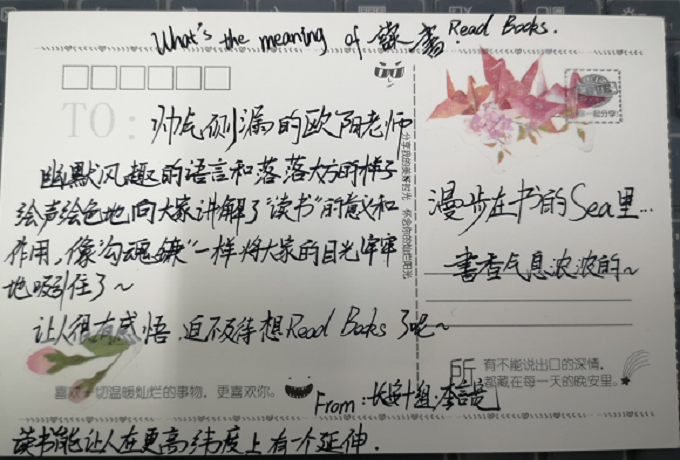 What's the meaning of Read Books.
TO: 帅气侧漏的欧阳老师
幽默风趣的语言和落落大方的样子
绘声绘色地向大家讲解了"读书"的意义和
作用,像"勾魂镰"一样将大家的目光牢牢
地吸引住了~
让人很有感悟,迫不及待想Read Books了呢~
喜欢一切温暖灿烂的事物,更喜欢你。
From:长安十组,李言
读书能让人在更高纬度上有一个延伸.
漫步在书的Sea里...
书香气息浓浓的~
所有不能说出口的深情,
都藏在每一天的晚安里。